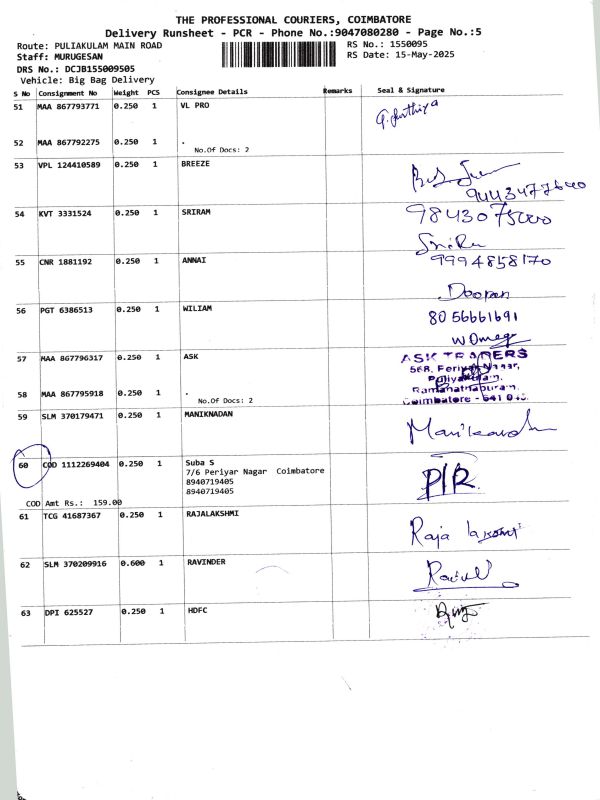 THE PROFESSIONAL COURIERS, COIMBATORE
Delivery Runsheet - PCR - Phone No.:9047080280 - Page No.:5
Route: PULIAKULAM MAIN ROAD RS No.: 1550095
Staff: MURUGESAN RS Date: 15-May-2025
DRS No.: DCJB155009505
Vehicle: Big Bag Delivery
S No Consignment No Weight PCS Consignee Details Remarks Seal & Signature
51 MAA 867793771 0.250 1 VL PRO
52 MAA 867792275 0.250 1 .
No.Of Docs: 2
53 VPL 124410589 0.250 1 BREEZE
9443477640
54 KVT 3331524 0.250 1 SRIRAM 9843075000
55 CNR 1881192 0.250 1 ANNAI 9994858170
56 PGT 6386513 0.250 1 WILIAM 8056661691
57 MAA 867796317 0.250 1 ASK ASK TRADERS
568, Periyar Nagar,
Puliyakulam,
58 MAA 867795918 0.250 1 . Ramanathapuram,
No.Of Docs: 2 Coimbatore - 641 045
59 SLM 370179471 0.250 1 MANIKNADAN
60 COD 1112269404 0.250 1 Suba S P/R
7/6 Periyar Nagar Coimbatore
8940719405
8940719405
COD Amt Rs.: 159.00
61 TCG 41687367 0.250 1 RAJALAKSHMI Raja
62 SLM 370209916 0.600 1 RAVINDER
63 DPI 625527 0.250 1 HDFC